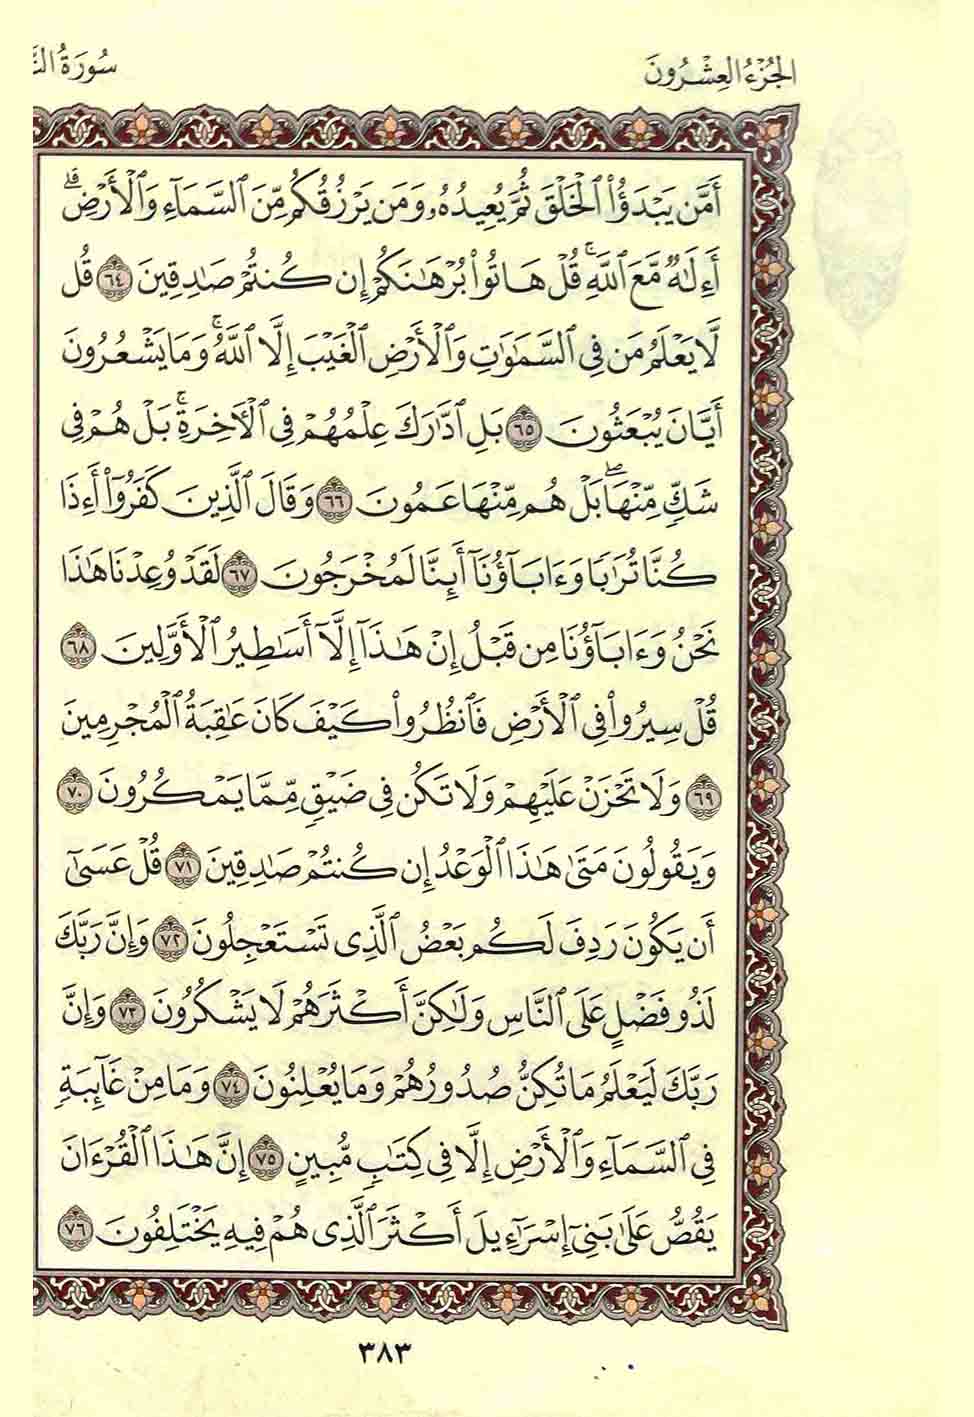 الجُزْءُ العِشْرُونَ
سُورَةُ
أَمَّن يَبْدَؤُا۟ ٱلْخَلْقَ ثُمَّ يُعِيدُهُۥ وَمَن يَرْزُقُكُم مِّنَ ٱلسَّمَآءِ وَٱلْأَرْضِ ۗ
أَءِلَـٰهٌ مَّعَ ٱللَّهِ ۚ قُلْ هَاتُوا۟ بُرْهَـٰنَكُمْ إِن كُنتُمْ صَـٰدِقِينَ ٦٤ قُل
لَّا يَعْلَمُ مَن فِى ٱلسَّمَـٰوَٰتِ وَٱلْأَرْضِ ٱلْغَيْبَ إِلَّا ٱللَّهُ ۚ وَمَا يَشْعُرُونَ
أَيَّانَ يُبْعَثُونَ ٦٥ بَلِ ٱدَّٰرَكَ عِلْمُهُمْ فِى ٱلْـَٔاخِرَةِ ۚ بَلْ هُمْ فِى
شَكٍّ مِّنْهَا ۖ بَلْ هُم مِّنْهَا عَمُونَ ٦٦ وَقَالَ ٱلَّذِينَ كَفَرُوٓا۟ أَءِذَا
كُنَّا تُرَٰبًا وَءَابَآؤُنَآ أَئِنَّا لَمُخْرَجُونَ ٦٧ لَقَدْ وُعِدْنَا هَـٰذَا
نَحْنُ وَءَابَآؤُنَا مِن قَبْلُ إِنْ هَـٰذَآ إِلَّآ أَسَـٰطِيرُ ٱلْأَوَّلِينَ ٦٨
قُلْ سِيرُوا۟ فِى ٱلْأَرْضِ فَٱنظُرُوا۟ كَيْفَ كَانَ عَـٰقِبَةُ ٱلْمُجْرِمِينَ
٦٩ وَلَا تَحْزَنْ عَلَيْهِمْ وَلَا تَكُن فِى ضَيْقٍ مِّمَّا يَمْكُرُونَ ٧٠
وَيَقُولُونَ مَتَىٰ هَـٰذَا ٱلْوَعْدُ إِن كُنتُمْ صَـٰدِقِينَ ٧١ قُلْ عَسَىٰٓ
أَن يَكُونَ رَدِفَ لَكُم بَعْضُ ٱلَّذِى تَسْتَعْجِلُونَ ٧٢ وَإِنَّ رَبَّكَ
لَذُو فَضْلٍ عَلَى ٱلنَّاسِ وَلَـٰكِنَّ أَكْثَرَهُمْ لَا يَشْكُرُونَ ٧٣ وَإِنَّ
رَبَّكَ لَيَعْلَمُ مَا تُكِنُّ صُدُورُهُمْ وَمَا يُعْلِنُونَ ٧٤ وَمَا مِنْ غَآئِبَةٍ
فِى ٱلسَّمَآءِ وَٱلْأَرْضِ إِلَّا فِى كِتَـٰبٍ مُّبِينٍ ٧٥ إِنَّ هَـٰذَا ٱلْقُرْءَانَ
يَقُصُّ عَلَىٰ بَنِىٓ إِسْرَٰٓءِيلَ أَكْثَرَ ٱلَّذِى هُمْ فِيهِ يَخْتَلِفُونَ ٧٦
٣٨٣